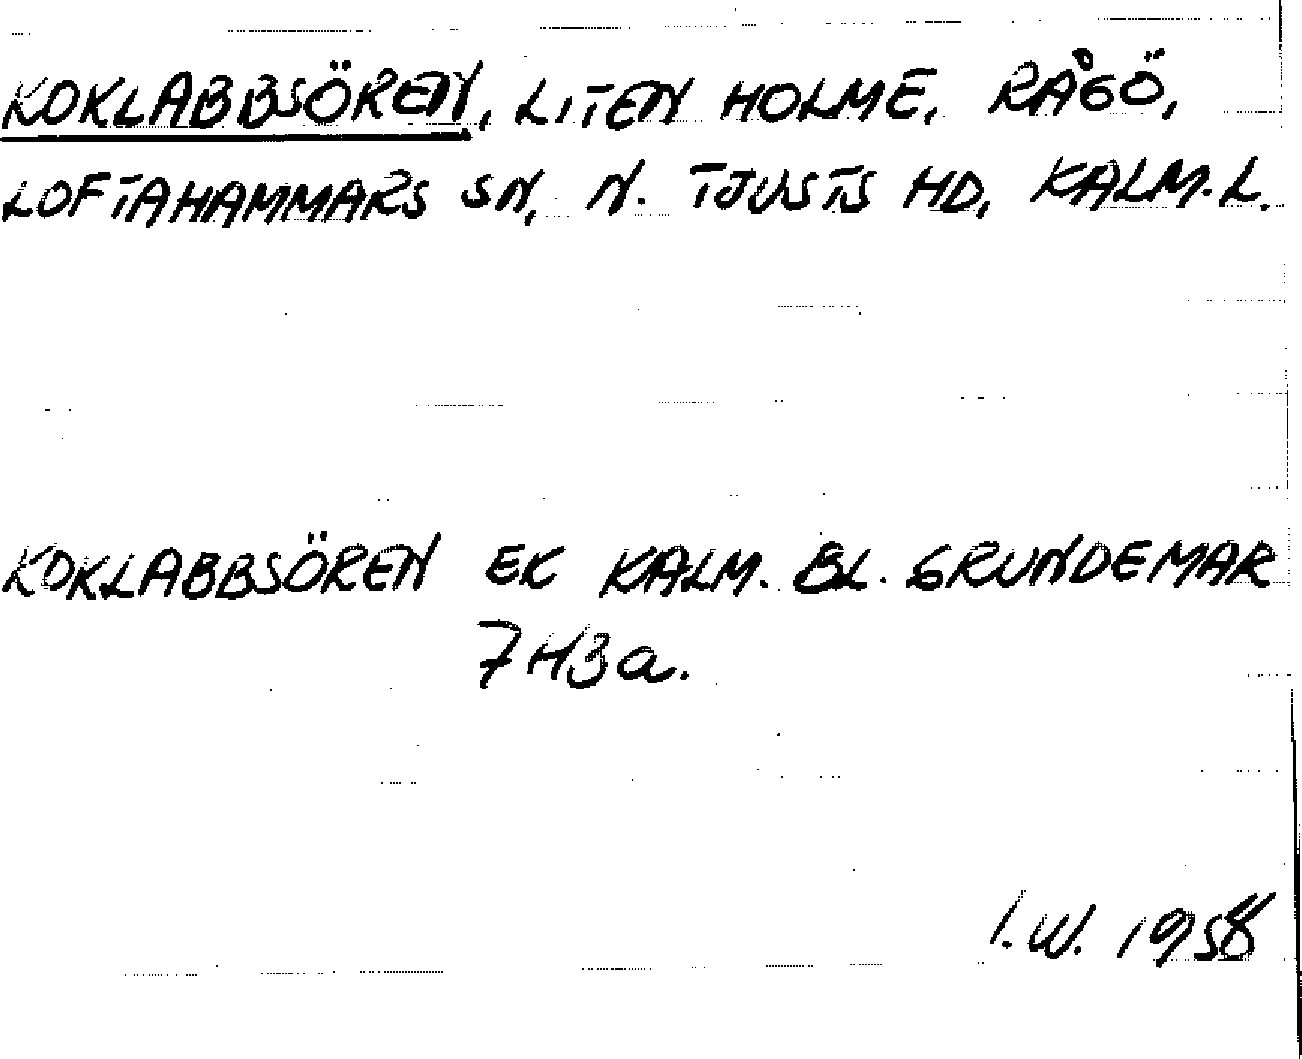 KOKLABBSÖREN, LITEN HOLME, RÅGÖ,
LOFTAHAMMARS SN, N. TJUSTS HD, KALM. L.
KOKLABBSÖREN EK KALM. BL. GRUNDEMAR
7H3a.
I.W. 1958